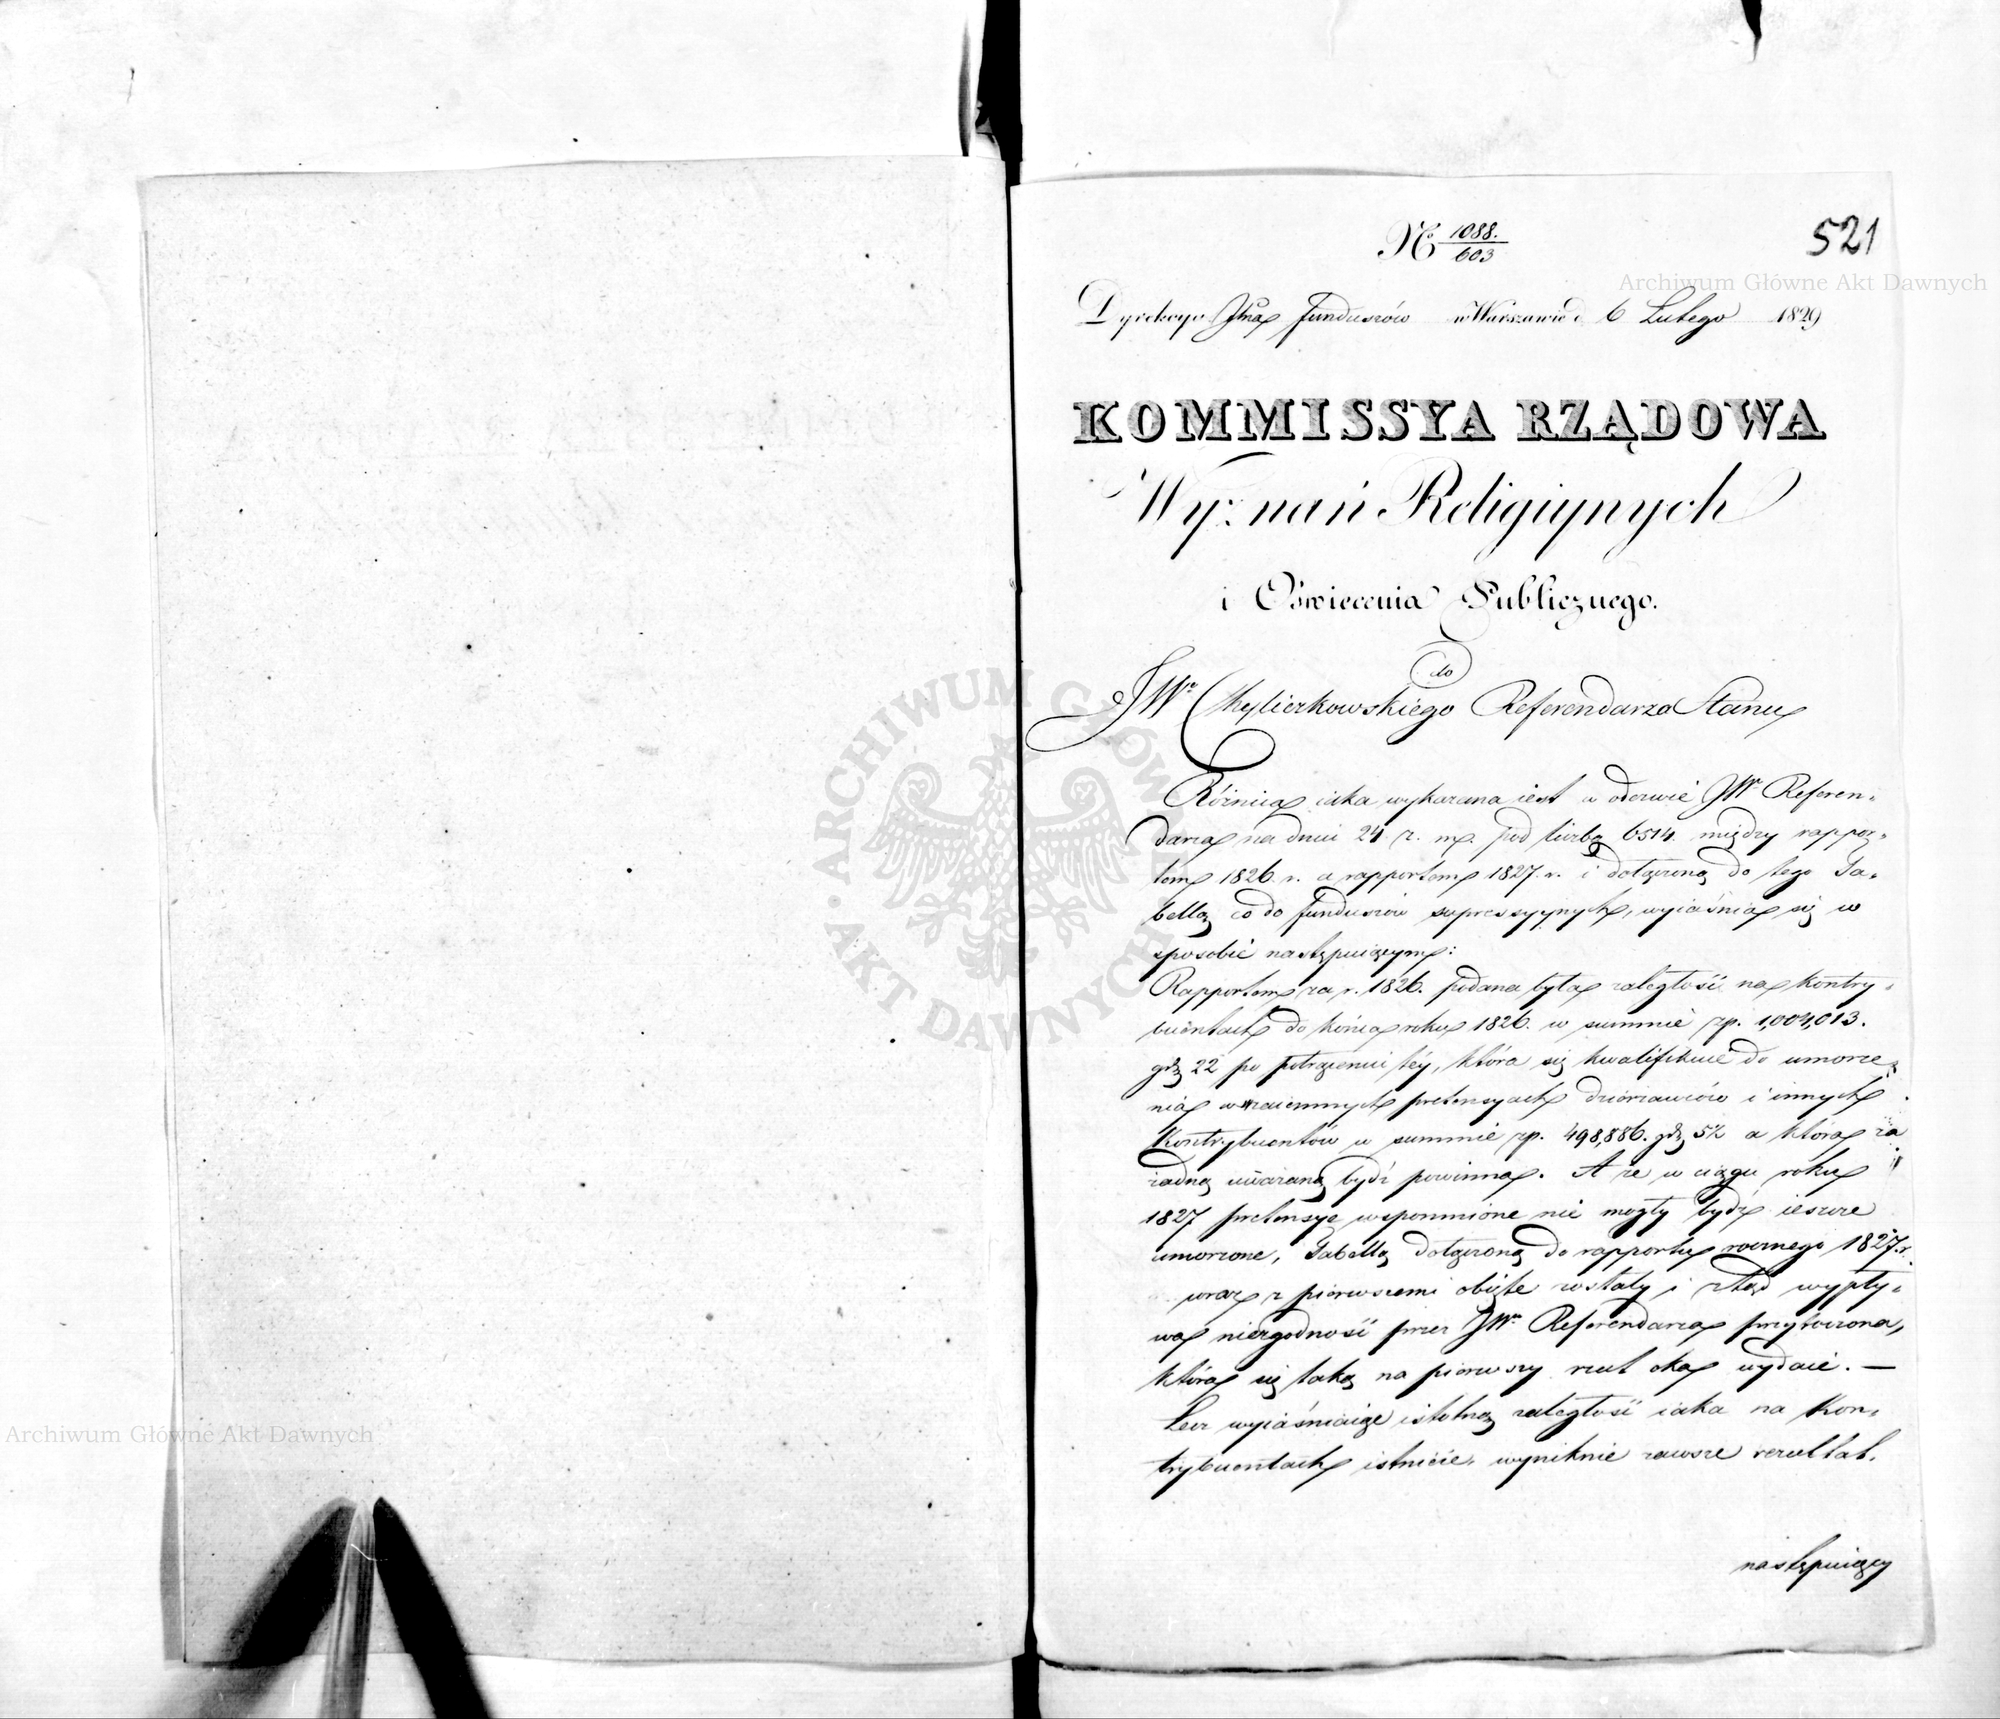 521
No 1088./603
Archiwum Główne Akt Dawnych
Dyrekcya Jlna Funduszów w Warszawie d. 6 Lutego 1829
KOMMISSYA RZĄDOWA
Wyznań Religiynych
i Oświecenia Publicznego.
do
JWo Chyliczkowskiego Referendarza Stanu
Różnica iaka wykazana iest w odezwie JWo Referen-
darza na dniu 24 r. m. pod liczbą 6514. między rappor-
tem 1826. r. a rapportem 1827. r. i dołączoną do tego Ta-
bellą co do funduszów supressyynych, wyiaśnia się w
sposobie następuiącym:
Rapportem za r. 1826. podana była zaległość na kontry-
buentach do końca roku 1826. w summie zp. 1,004,013.
gr 22 po potrąceniu téy, która się kwalifikuie do umorze-
nia w wzaiemnych pretensyach dzierzawców i innych
Kontrybuentów w summie zp. 498,886. gr 5½ a która za
żadną uważaną bydź powinna. A że w ciągu roku
1827 pretensye wspomnione nie mogły bydź ieszcze
umorzone, Tabellą dołączoną do rapportu rocznego 1827. r.
wraz z pierwszemi obięte zostały i ztąd wypły-
wa niezgodność przez JWo Referendarza przytoczona,
która się taką na pierwszy rzut oka wydaie. —
Lecz wyiaśniaiąc istotną zaległość iaka na Kon-
trybuentach istnieie, wyniknie zawsze rezultat.
następuiący
ARCHIWUM GŁÓWNE AKT DAWNYCH
Archiwum Główne Akt Dawnych